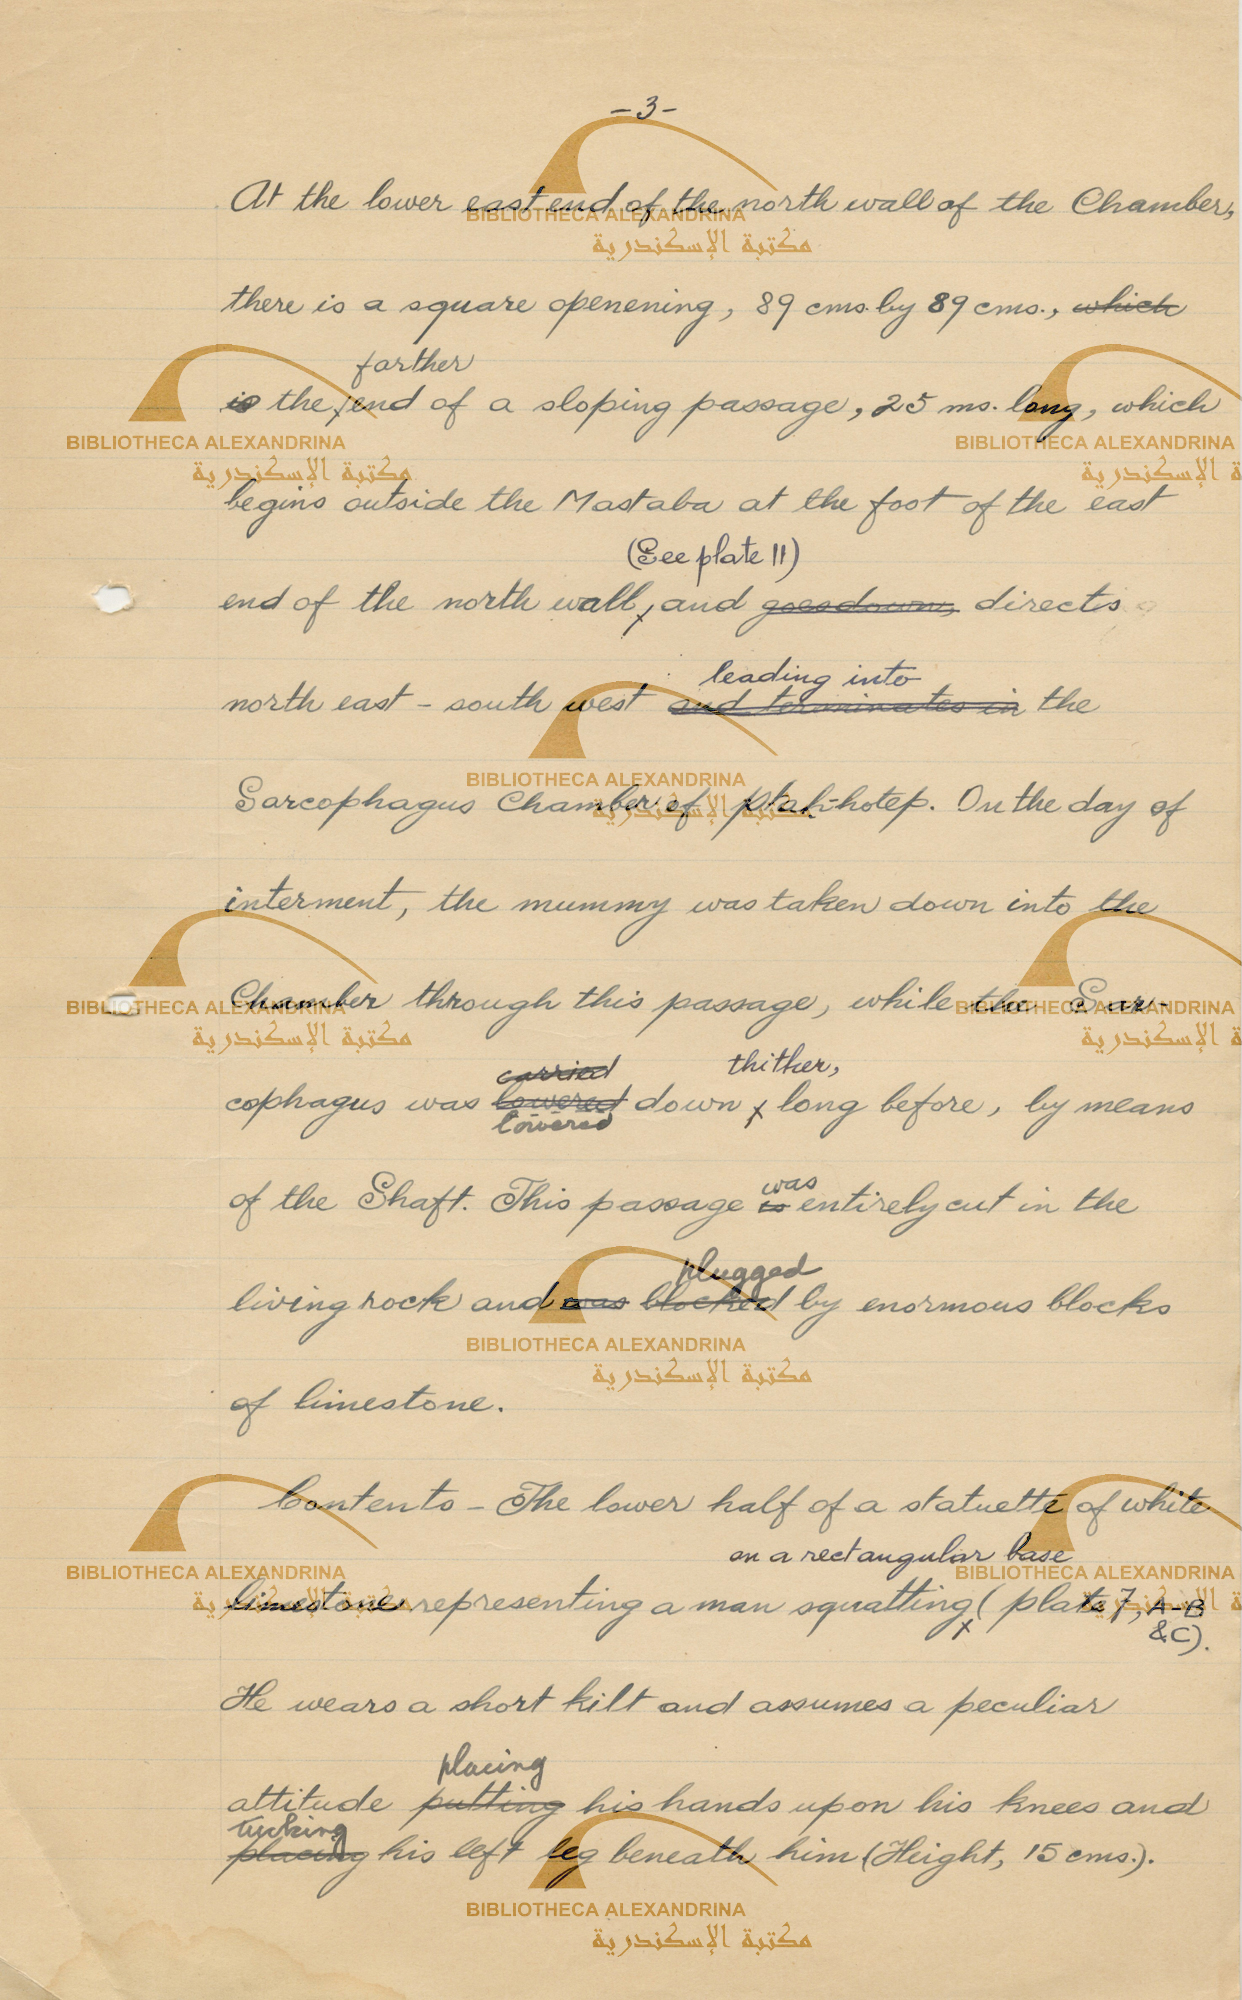 -3-
At the lower east end of the north wall of the Chamber,
there is a square openening, 89 cms. by 89 cms., which
farther
is the end of a sloping passage, 25 ms. long, which
begins outside the Mastaba at the foot of the east
(See plate 11)
end of the north wall, and goes down, directs
leading into
north east - south west and terminates in the
Sarcophagus Chamber of Ptah-hotep. On the day of
interment, the mummy was taken down into the
Chamber through this passage, while the Sar-
carried thither,
cophagus was lowered down x long before, by means
lowered
of the Shaft. This passage is entirely cut in the
was
living rock and was blocked by enormous blocks
plugged
of limestone.
Contents - The lower half of a statuette of white
on a rectangular base
limestone representing a man squatting x (plate 7, A-B
&C).
He wears a short kilt and assumes a peculiar
placing
attitude putting his hands upon his knees and
tucking
placing his left leg beneath him (Height, 15 cms.).
BIBLIOTHECA ALEXANDRINA
مكتبة الإسكندرية